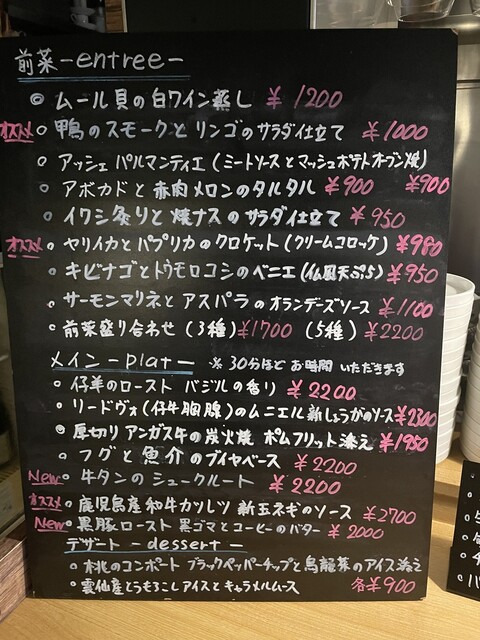 前菜-entree-
ムール貝の白ワイン蒸し ¥1200
オススメ 鴨のスモークとリンゴのサラダ仕立て ¥1000
アッシェ パルマンティエ(ミートソースとマッシュポテトオーブン焼) ¥900
アボカドと赤肉メロンのタルタル ¥900
イワシ炙りと焼ナスのサラダ仕立て ¥950
オススメ ヤリイカとパプリカのクロケット(クリームコロッケ) ¥980
キビナゴとトウモロコシのベニエ(仏風天ぷら) ¥950
サーモンマリネとアスパラのオランデーズソース ¥1100
前菜盛り合わせ(3種)¥1700 (5種)¥2200
メイン-plat- ※30分ほどお時間いただきます
仔羊のロースト バジルの香り ¥2200
リードヴォ(仔牛胸腺)のムニエル新しょうがのソース¥2300
厚切りアンガス牛の炭火焼 ポムフリット添え ¥1950
フグと魚介のブイヤベース ¥2200
New 牛タンのシュークルート ¥2200
オススメ 鹿児島産和牛カツレツ 新玉ネギのソース ¥2700
New 黒豚ロースト 黒ゴマとコーヒーのバター ¥2000
デザート-dessert-
桃のコンポート ブラックペッパーチップと烏龍茶のアイス添え
雲仙産とうもろこしアイスとキャラメルムース 各¥900